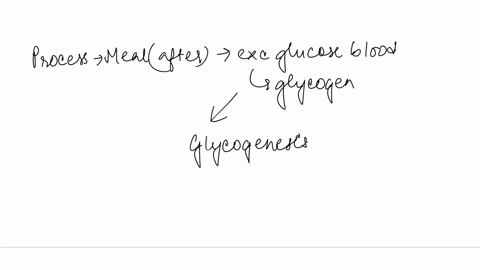 Process → Meal (after) → exc glucose blood
↳ glycogen
Glycogenesis